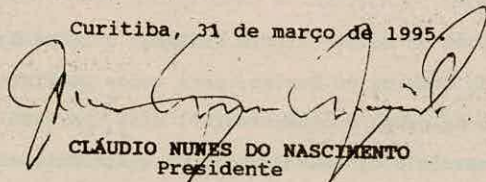 Curitiba, 31 de março de 1995.
CLÁUDIO NUNES DO NASCIMENTO
Presidente